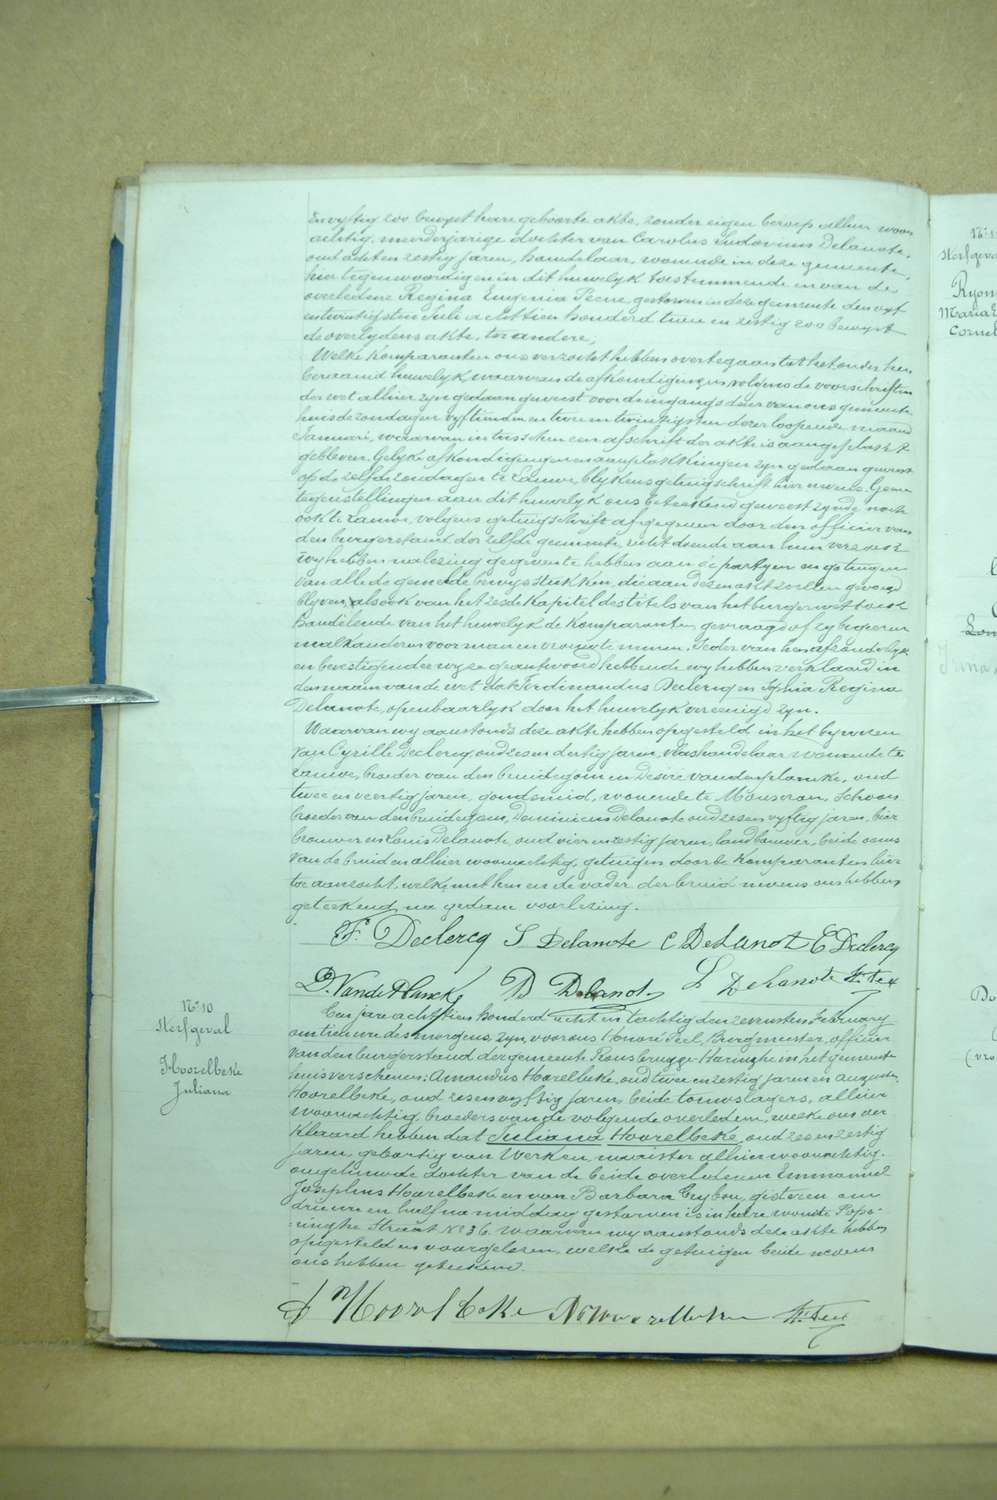 en vyftig zoo bewyst hare geboorte akte, zonder eigen beroep alhier woon
achtig, meerderjarige dochter van Carolus Ludovicus Delanote,
oud acht en zestig jaren, handelaar, wonende in deze gemeente,
hier tegenwoordig en in dit huwelyk toestemmende en van de
overledene Regina Eugenia Peene gestorven in deze gemeente den vyf
en twintigsten Juli achttien honderd twee en zestig zoo bewyst
de overlydens akte, ter andere,
Welke komparanten ons verzocht hebben over te gaan tot het onder hen
beraamd huwelyk, waarvan de afkondigingen volgens de voorschriften
der wet alhier zyn gedaan geweest voor den ingangs deur van ons gemeente
huis de zondagen vyftienden en twee en twintigsten dezer loopende maand
Januari, waarvan intusschen een afschrift der akte is aangeplakt
gebleven. Gelyke afkondigingen en aanplakkingen zyn gedaan geweest
op de zelfde zondagen te Lauwe, blykens getuigschrift hier nevens. Geene
tegenstellingen aan dit huwelyk ons beteekend geweest zynde noch
ook te Lauwe, volgens getuigschrift afgegeven door den officier van
den burgerstand der zelfde gemeente, recht doende aan hun verzoek
wy hebben na lezing gegeven te hebben aan de partyen en getuigen
van alle de gemelde bewysstukken, die aan deze akt zullen gevoegd
blyven, alsook van het zesde kapitel des titels van het burger wetboek
handelende van het huwelyk de komparanten gevraagd of zy begeeren
malkanderen voor man en vrouw te nemen. Ieder van hen afzonderlyk
en bevestigender wyze geantwoord hebbende wy hebben verklaard in
den naam van de wet dat Ferdinandus Declercq en Sophia Regina
Delanote, openbaarlyk door het huwelyk vereenigd zyn.
Waarvan wy aanstonds deze akte hebben opgesteld in het bywezen
van Cyrille Declercq, oud zes en dertig jaren, vlashandelaar wonende te
Lauwe, broeder van den bruidegom en Désiré Vandeplancke, oud
twee en veertig jaren, goudsmid, wonende te Mouscron, schoon
broeder van den bruidegom, Dominicus Delanote oud zes en vyftig jaren, bier
brouwer en Louis Delanote, oud vier en zestig jaren, landbouwer, beide ooms
van de bruid en alhier woonachtig, getuigen door de komparanten hier
toe aanzocht, welke met hen en de vader der bruid nevens ons hebben
geteekend na gedane voorlezing.
F. Declercq S Delanote C Delanote C Declercq
D. Vande Plancke D Delanote L Delanote
N° 10
Sterfgeval
Hoorelbeke
Juliana
Een jare achttien honderd acht en tachtig den zevensten February
om tien ure des morgens, zyn voor ons Honoré Feel, Burgmeester, officier
van den burgerstand der gemeente Rousbrugge-Haringhe in het gemeente
huis verschenen: Amandus Hoorelbeke, oud twee en zestig jaren en Augustus
Hoorelbeke, oud zes en vyftig jaren, beide touwslagers, alhier
woonachtig broeders van de volgende overledene, welke ons ver
klaard hebben dat Juliana Hoorelbeke, oud zes en zestig
jaren, geboortig van Werken, naaister alhier woonachtig,
ongehuwde dochter van de beide overledenen Emmanuel
Josephus Hoorelbeke en van Barbara, gisteren om
drie uren en half na middag gestorven is in hare woonste Pope-
ringhe Straat N° 36. Waarvan wy aanstonds deze akte hebben
opgesteld en voorgelezen, welke de getuigen beide nevens
ons hebben geteekend.
A Hoorelbeke
N° 1
Sterfgeva
Ryon
Maria
Cornel